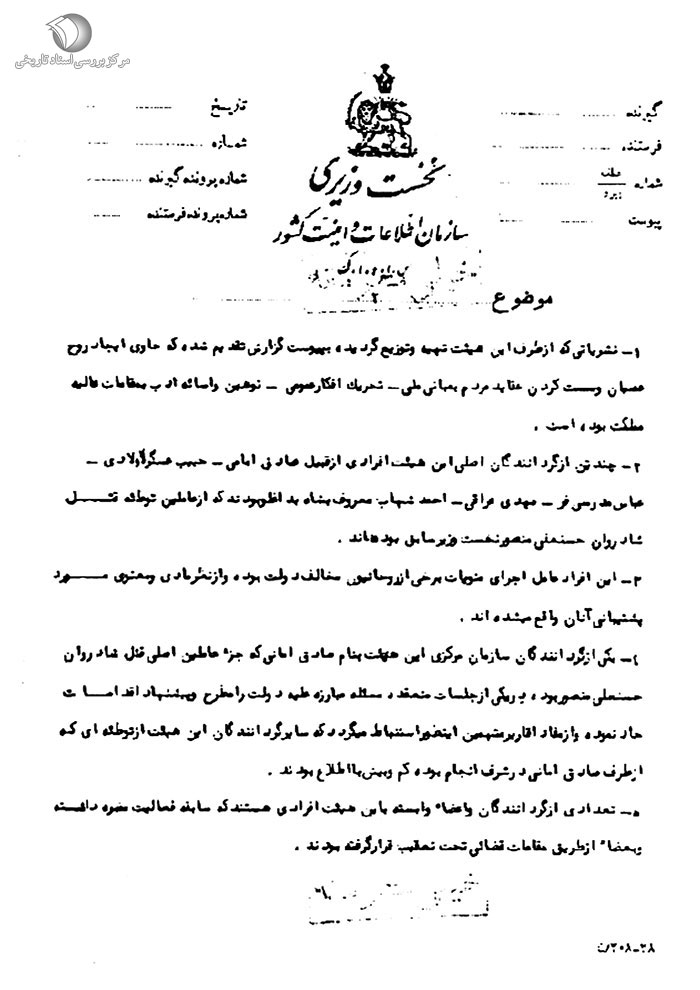 مرکز بررسی اسناد تاریخی
گیرنده
فرستنده
شماره
پیوست
تاریخ
شماره
شماره پرونده گیرنده
شماره پرونده فرستنده
نخست وزیری
سازمان اطلاعات و امنیت کشور
موضوع
۱ـ نشریاتی که از طرف این هیئت تهیه و توزیع گردیده بپیوست گزارش تقدیم شده که حاوی ایجاد روح
عصیان وسست کردن عقاید مردم بمبانی ملی ـ تحریک افکارعمومی ـ توهین واسائه ادب بمقامات عالیه
مملکت بوده است .
۲ـ چند تن از گردانندگان اصلی این هیئت افرادی از قبیل صادق امامی ـ حبیب عسگراولادی ـ
عباس مدرسی فر ـ مهدی عراقی ـ احمد شهاب معروف بشاه بداظهودند که از عاملین توطئه قتل
شادروان حسنعلی منصور نخست وزیر سابق بوده‌اند .
۳ـ این افراد عامل اجرای منویات برخی از روحانیون مخالف دولت بوده و از نظر مادی ومعنوی مورد
پشتیبانی آنان واقع میشده اند .
۴ـ یکی از گردانندگان سازمان مرکزی این هیئت بنام صادق امانی که جزء عاملین اصلی قتل شادروان
حسنعلی منصور بوده در یکی از جلسات منعقده مسئله مبارزه علیه دولت را مطرح وپیشنهاد اقدامات
حاد نموده و از مفاد اقاریر متهمین اینطور استنباط میگردد که سایر گردانندگان این هیئت از توطئه ای که
از طرف صادق امانی در شرف انجام بوده کم وبیش با اطلاع بودند .
۵ـ تعدادی از گردانندگان واعضاء وابسته باین هیئت افرادی هستند که سابقه فعالیت مضره داشته
وبعضاء از طریق مقامات قضائی تحت تعقیب قرار گرفته بودند .
۲۸ـ۲۰۸/ت